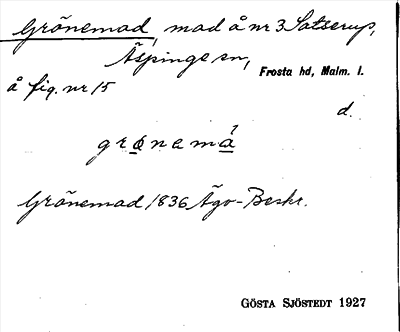 Grönemad, mad å nr 3 Satserup,
Äspinge sn,
Frosta hd, Malm. l.
å fig. nr 15
d.
grønemá
Grönemad 1836 Ägo-Beskr.
GÖSTA SJÖSTEDT 1927